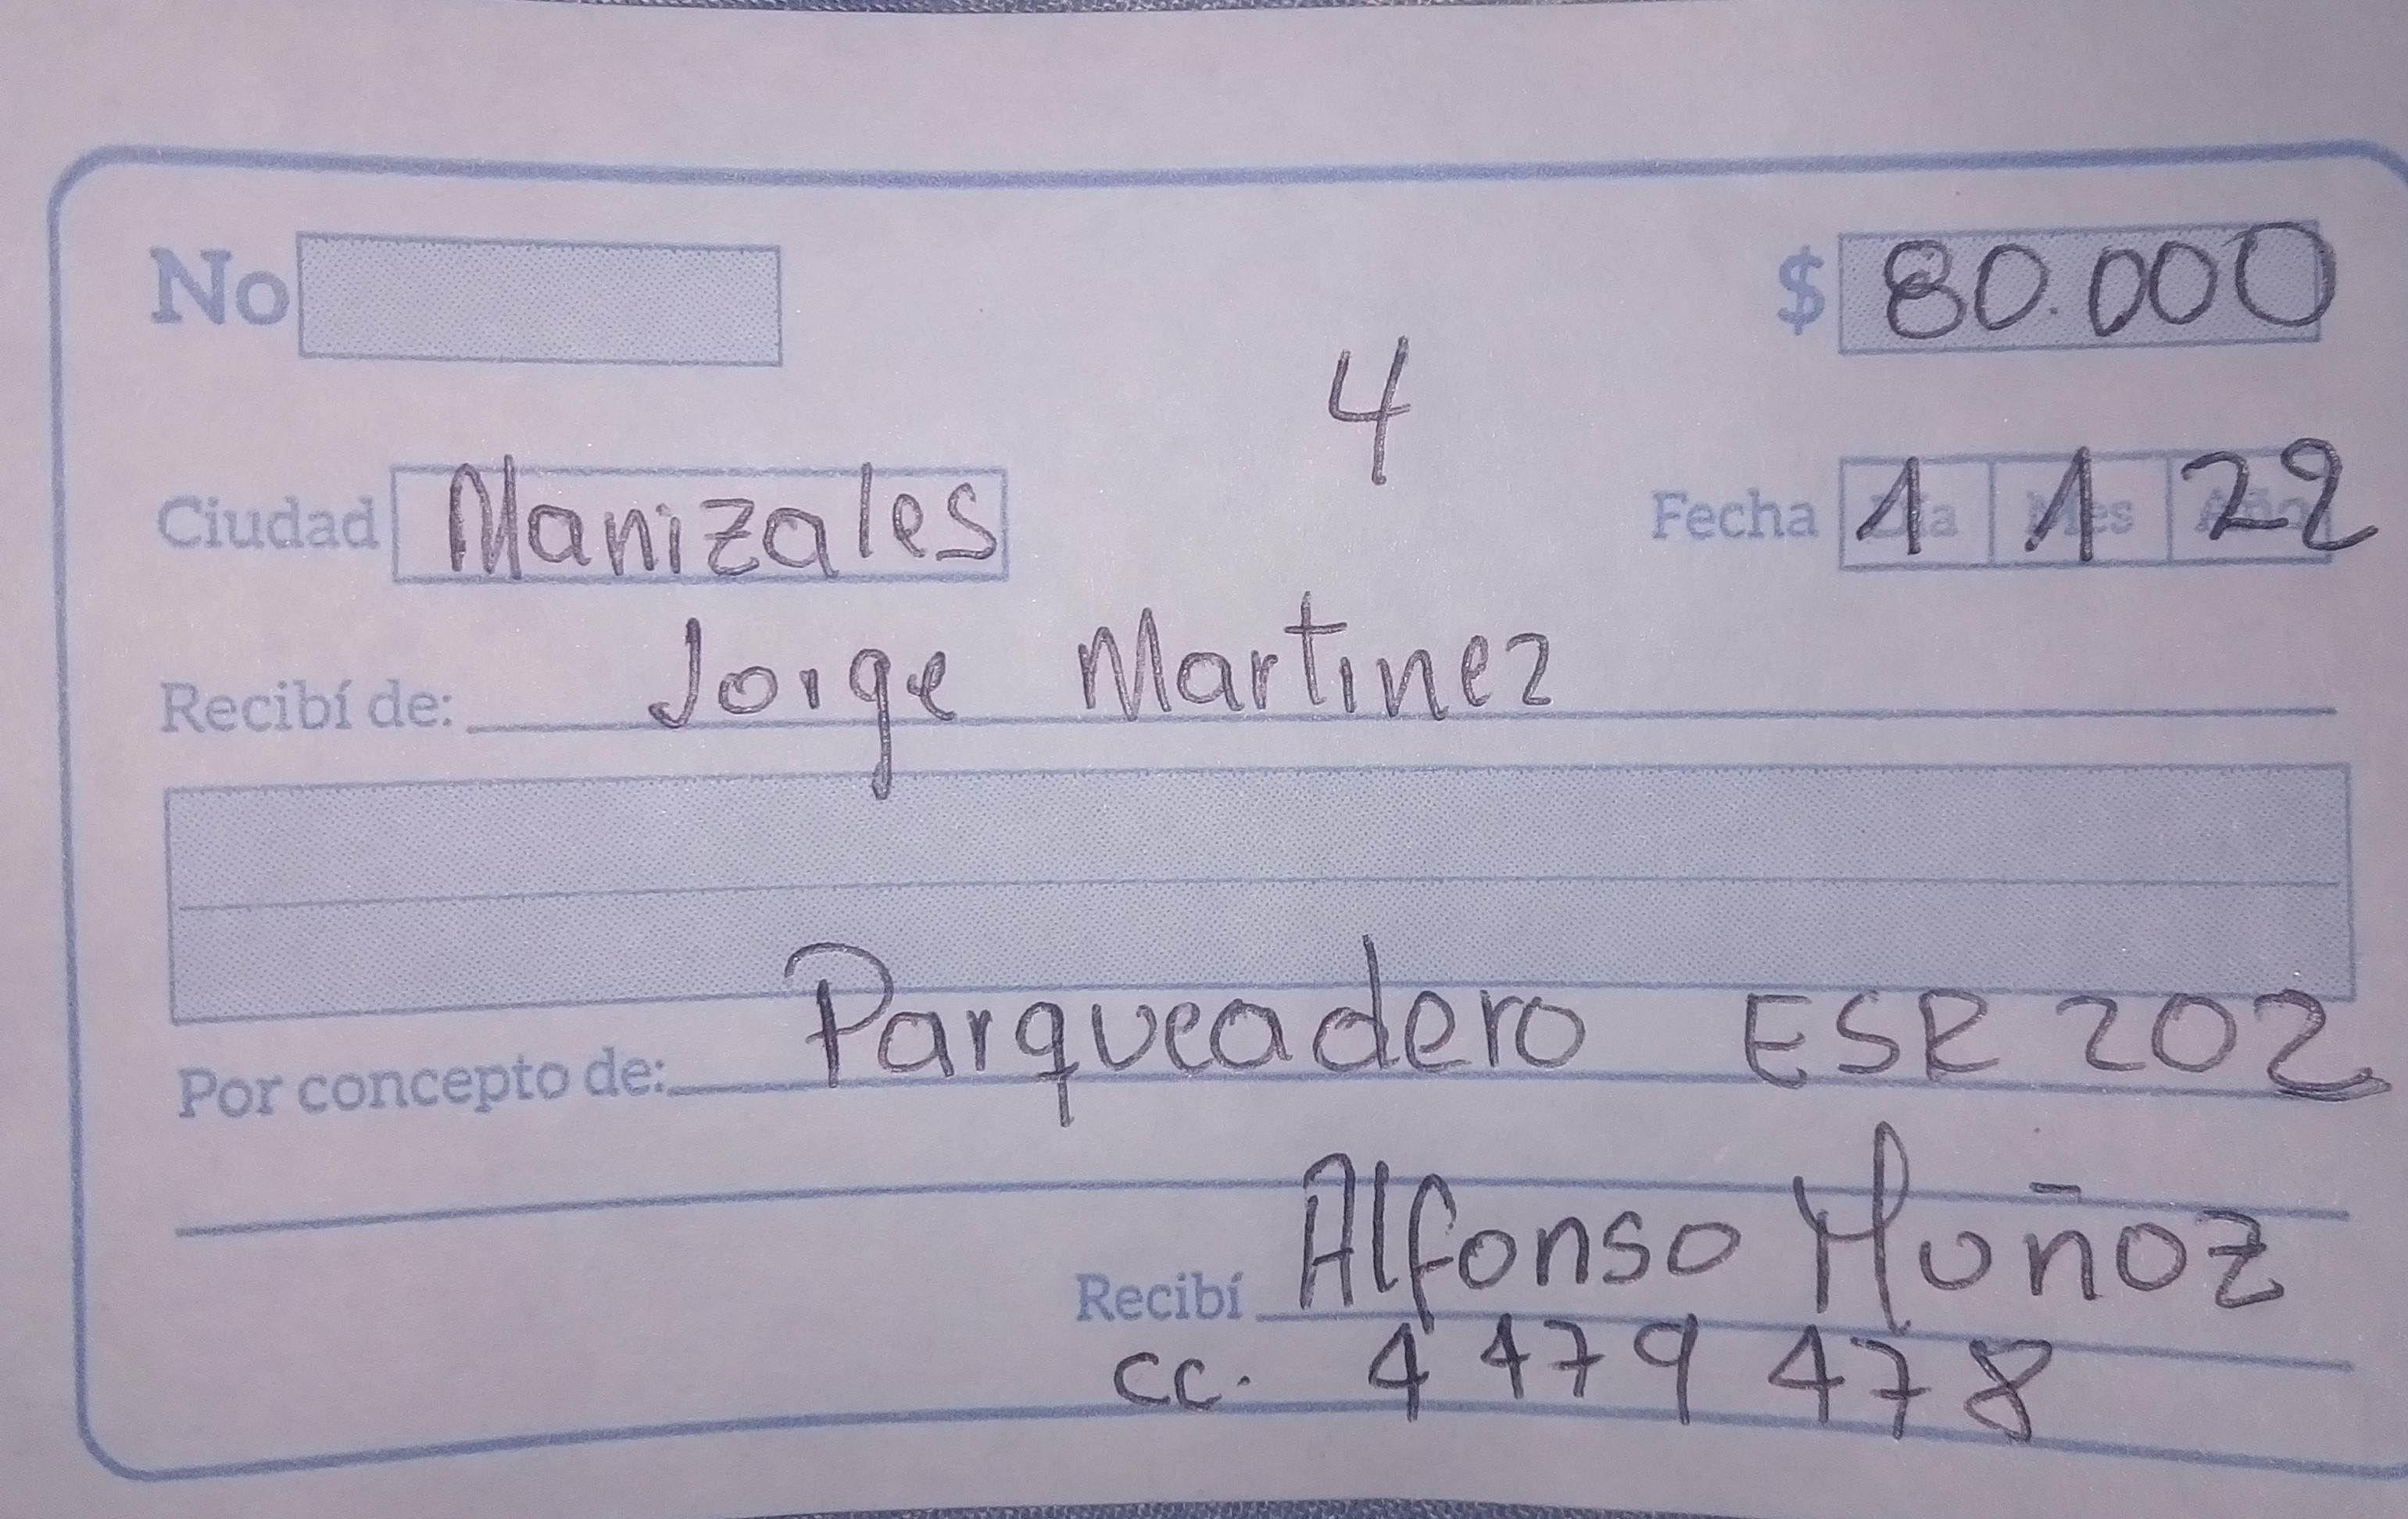 No $ 80.000
4
Ciudad Manizales Fecha Día Mes Año 1 1 22
Recibí de: Jorge Martinez
Por concepto de: Parqueadero ESR 202
Recibí Alfonso Muñoz
cc. 4 479 478